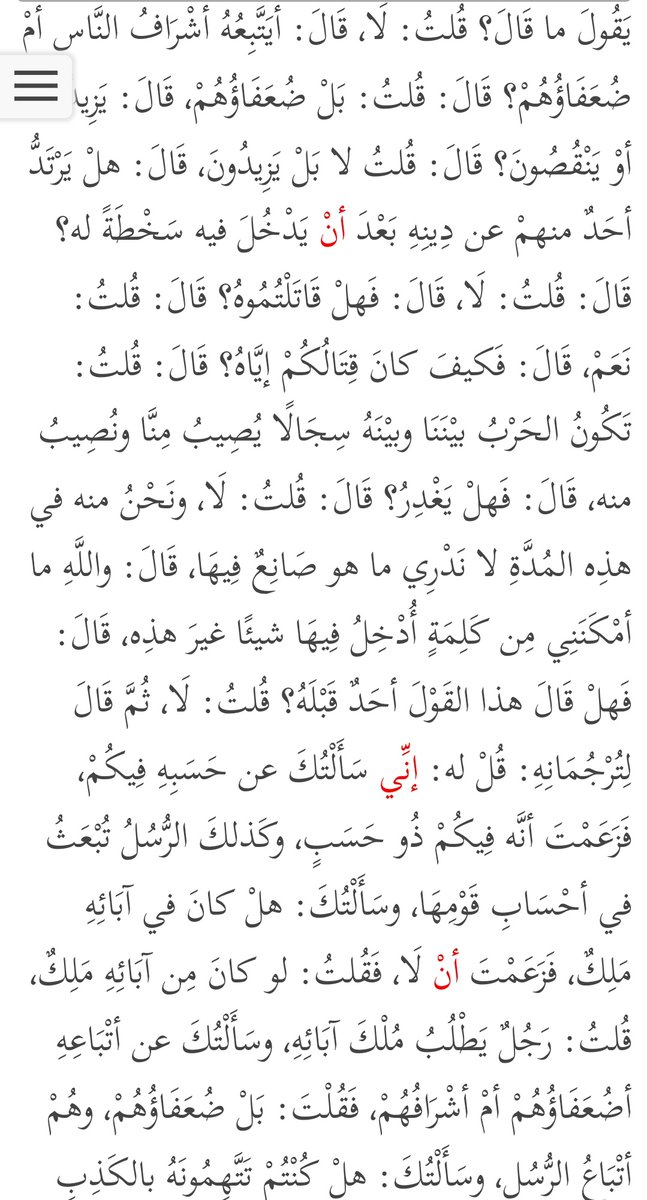 يَقُولَ ما قَالَ؟ قُلتُ: لَا، قَالَ: أيَتَّبِعُهُ أشْرَافُ النَّاسِ أمْ
ضُعَفَاؤُهُمْ؟ قَالَ: قُلتُ: بَلْ ضُعَفَاؤُهُمْ، قَالَ:
أوْ يَنْقُصُونَ؟ قَالَ: قُلتُ لا بَلْ يَزِيدُونَ، قَالَ: هلْ يَرْتَدُّ
أحَدٌ منهمْ عن دِينِهِ بَعْدَ أنْ يَدْخُلَ فيه سَخْطَةً له؟
قَالَ: قُلتُ: لَا، قَالَ: فَهلْ قَاتَلْتُمُوهُ؟ قَالَ: قُلتُ:
نَعَمْ، قَالَ: فَكيفَ كانَ قِتَالُكُمْ إيَّاهُ؟ قَالَ: قُلتُ:
تَكُونُ الحَرْبُ بيْنَنَا وبيْنَهُ سِجَالًا يُصِيبُ مِنَّا ونُصِيبُ
منه، قَالَ: فَهلْ يَغْدِرُ؟ قَالَ: قُلتُ: لَا، ونَحْنُ منه في
هذِه المُدَّةِ لا نَدْرِي ما هو صَانِعٌ فِيهَا، قَالَ: واللَّهِ ما
أمْكَنَنِي مِن كَلِمَةٍ أُدْخِلُ فِيهَا شيئًا غيرَ هذِه، قَالَ:
فَهلْ قَالَ هذا القَوْلَ أحَدٌ قَبْلَهُ؟ قُلتُ: لَا، ثُمَّ قَالَ
لِتُرْجُمَانِهِ: قُلْ له: إنِّي سَأَلْتُكَ عن حَسَبِهِ فِيكُمْ،
فَزَعَمْتَ أنَّه فِيكُمْ ذُو حَسَبٍ، وكَذلكَ الرُّسُلُ تُبْعَثُ
في أحْسَابِ قَوْمِهَا، وسَأَلْتُكَ: هلْ كانَ في آبَائِهِ
مَلِكٌ، فَزَعَمْتَ أنْ لَا، فَقُلتُ: لو كانَ مِن آبَائِهِ مَلِكٌ،
قُلتُ: رَجُلٌ يَطْلُبُ مُلْكَ آبَائِهِ، وسَأَلْتُكَ عن أتْبَاعِهِ
أضُعَفَاؤُهُمْ أمْ أشْرَافُهُمْ، فَقُلْتَ: بَلْ ضُعَفَاؤُهُمْ، وهُمْ
أتْبَاعُ الرُّسُلِ، وسَأَلْتُكَ: هلْ كُنْتُمْ تَتَّهِمُونَهُ بالكَذِبِ